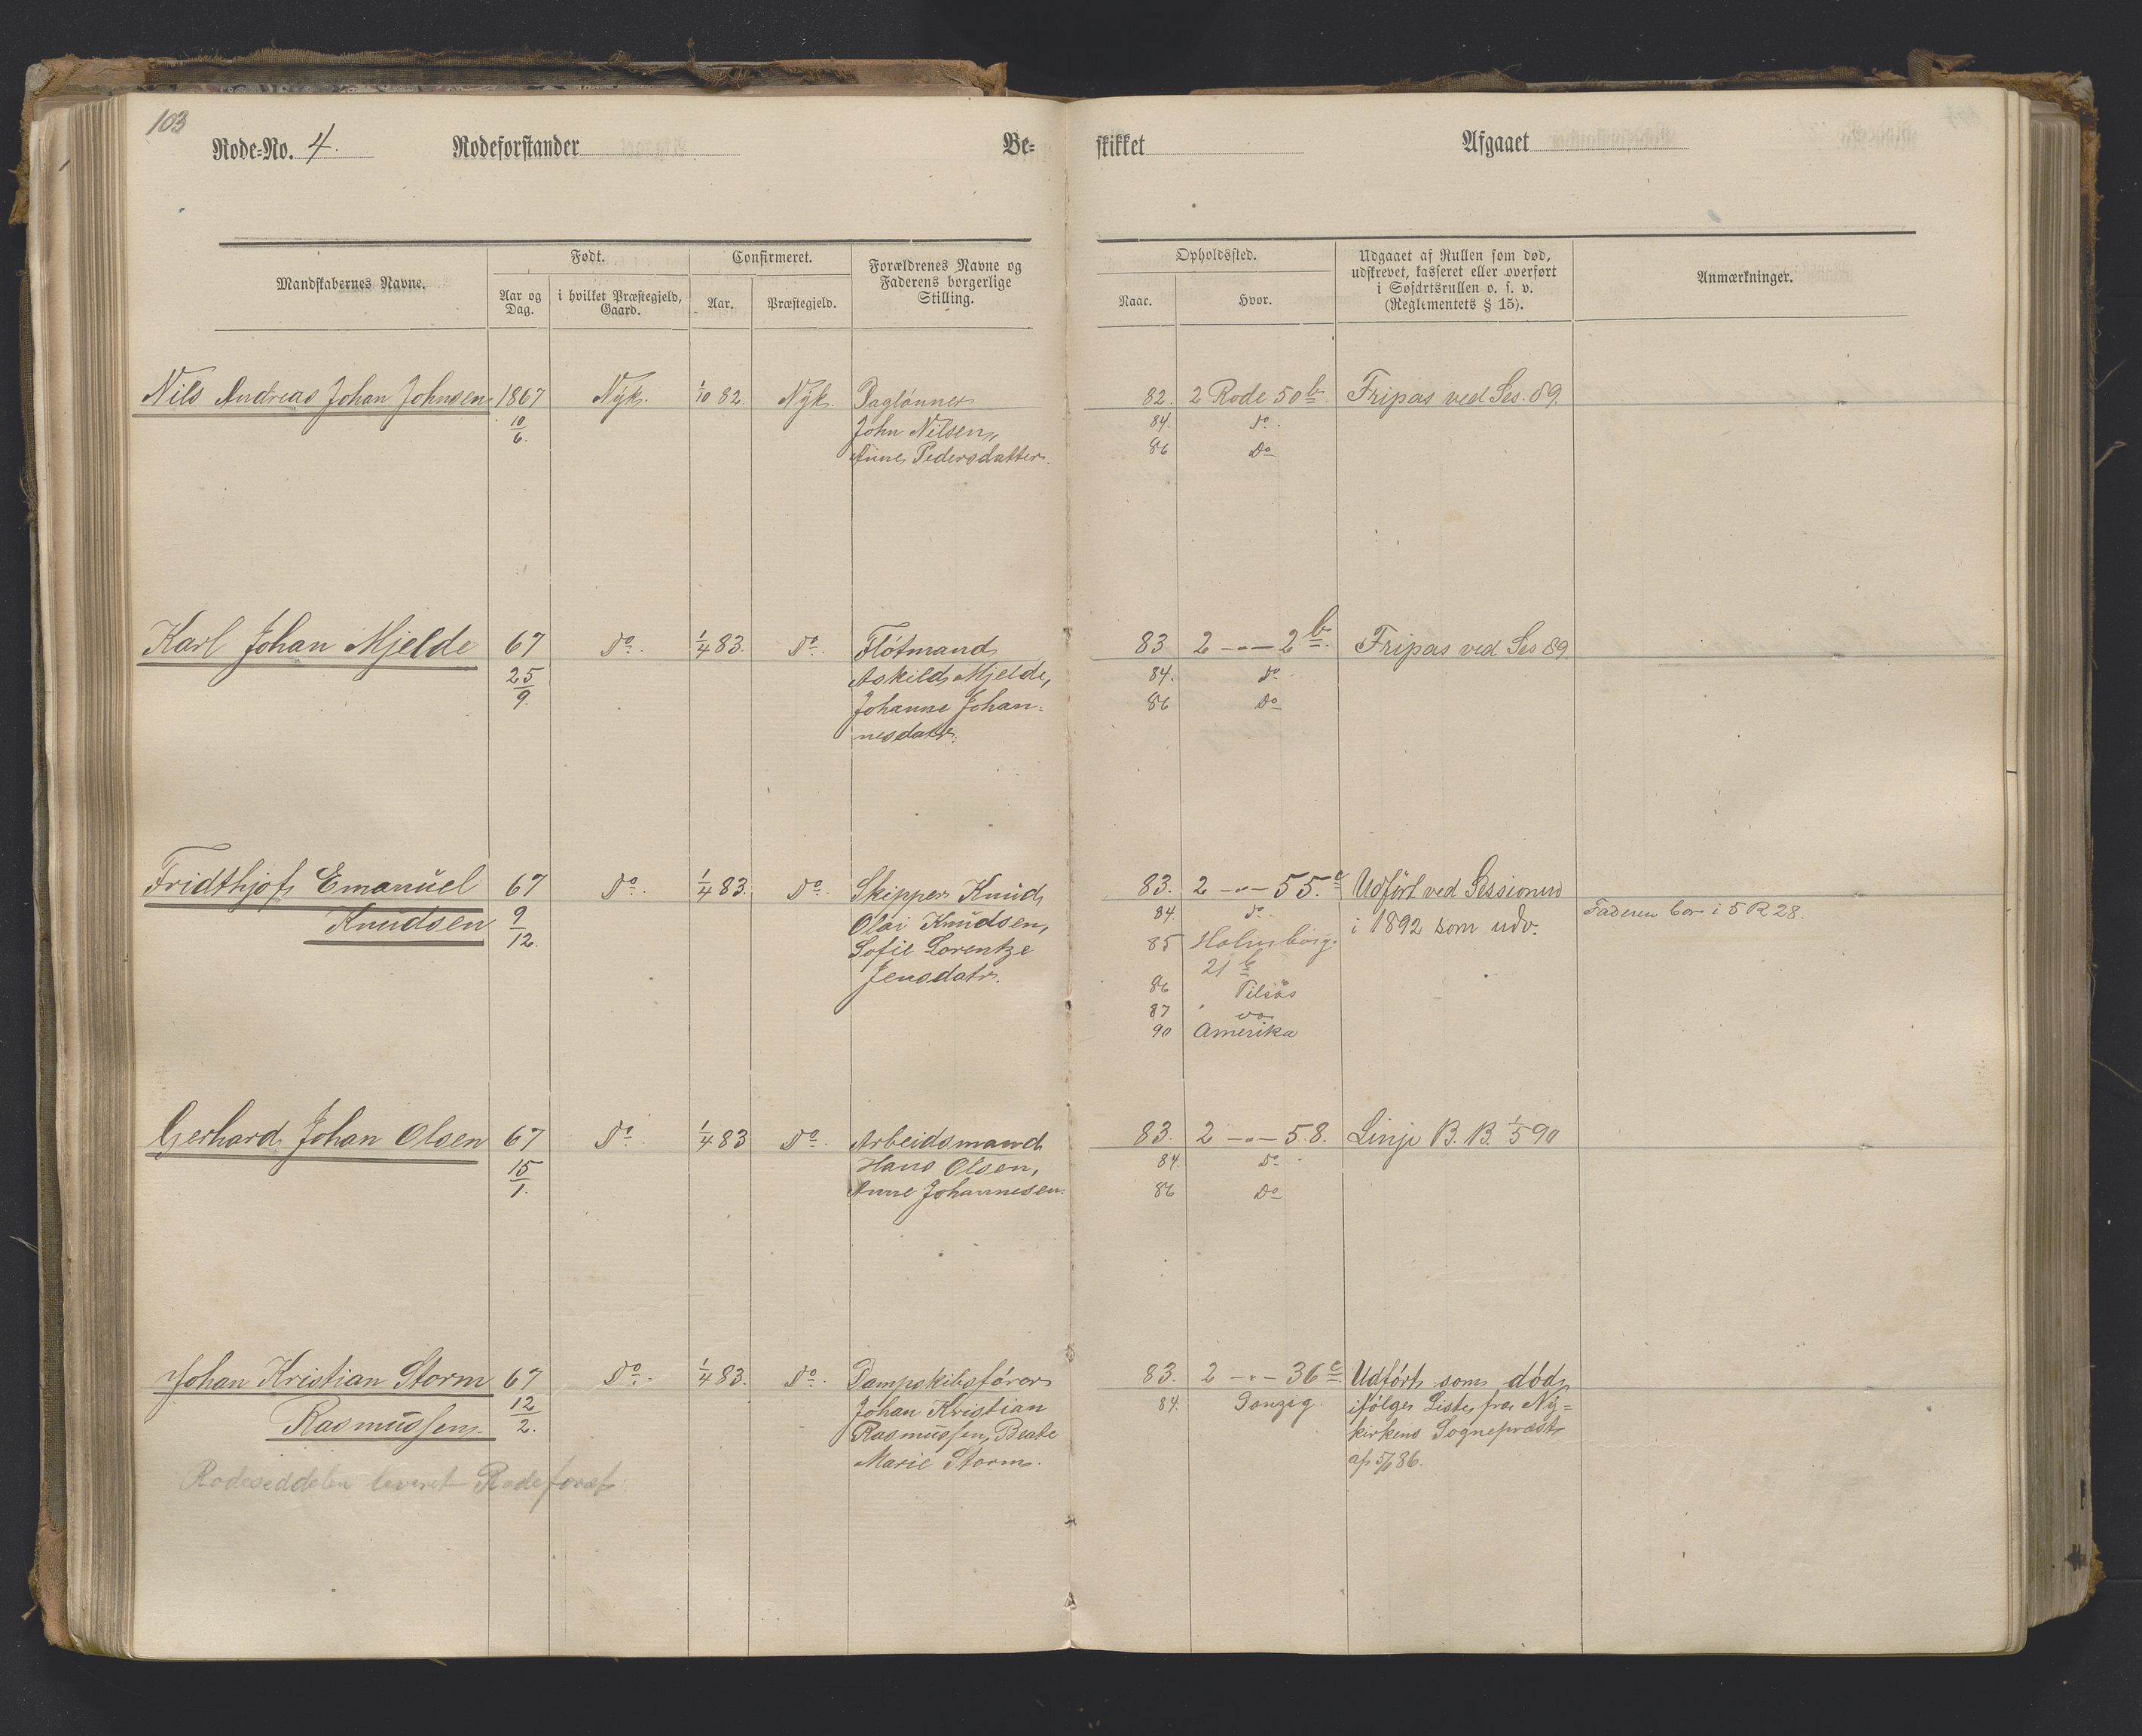 103
Rode-No. 4. Rodeforstander Be- skikket Afgaaet
Mandskabernes Navne.
Født.
Aar og Dag.
i hvilket Præstegjeld, Gaard.
Confirmeret.
Aar.
Præstegjeld.
Forældrenes Navne og
Faderens borgerlige
Stilling.
Opholdssted.
Naar.
Hvor.
Udgaaet af Rullen som død,
udskrevet, kasseret eller overført
i Søfartsrullen o. s. v.
(Reglementets § 15).
Anmærkninger.
Nils Andreas Johan Johnsen 1867 Nyk. 1/10 82. Nyk. Daglønner 82. 2 Rode 50 b Fripas ved Ses. 89.
10/6. John Nilsen, 84. Do.
Anne Pedersdatter. 86 Do
Karl Johan Mjelde 67 Do. 1/4 83. Do. Flótmand 83 2 -"- 2 b. Fripas ved Ses 89.
25/9. Askild Mjelde, 84. Do
Johanne Johan- 86 Do
nesdatr.
Fridthjof Emanuel 67 Do. 1/4 83. Do. Skipper Knud 83. 2 -"- 55. c Udført ved Sessionen
Knudsen 9/12. Olai Knudsen, 84. Do. i 1892 som udv. Faderen bor i 5 R 28.
Sofie Lorentze 85 Holmborg.
Jensdatr. 21 b
86 Tilsøs
87 do
90 Amerika
Gerhard Johan Olsen 67 Do. 1/4 83 Do. Arbeidsmand 83. 2 -"- 58. Linje B. B. 1/5 90
15/1. Hans Olsen, 84. Do
Anne Johannesen. 86 Do
Johan Kristian Storm 67 Do. 1/4 83. Do. Dampskibsfører 83. 2 -"- 36 c Udført som død
Rasmussen. 12/2. Johan Kristian 84. Danzig. ifølge Liste fra Ny=
Rasmussen, Beate kirkens Sognepræst
Marie Storm. af 5/1 86.
Rodeseddelen leveret Rodeforst.